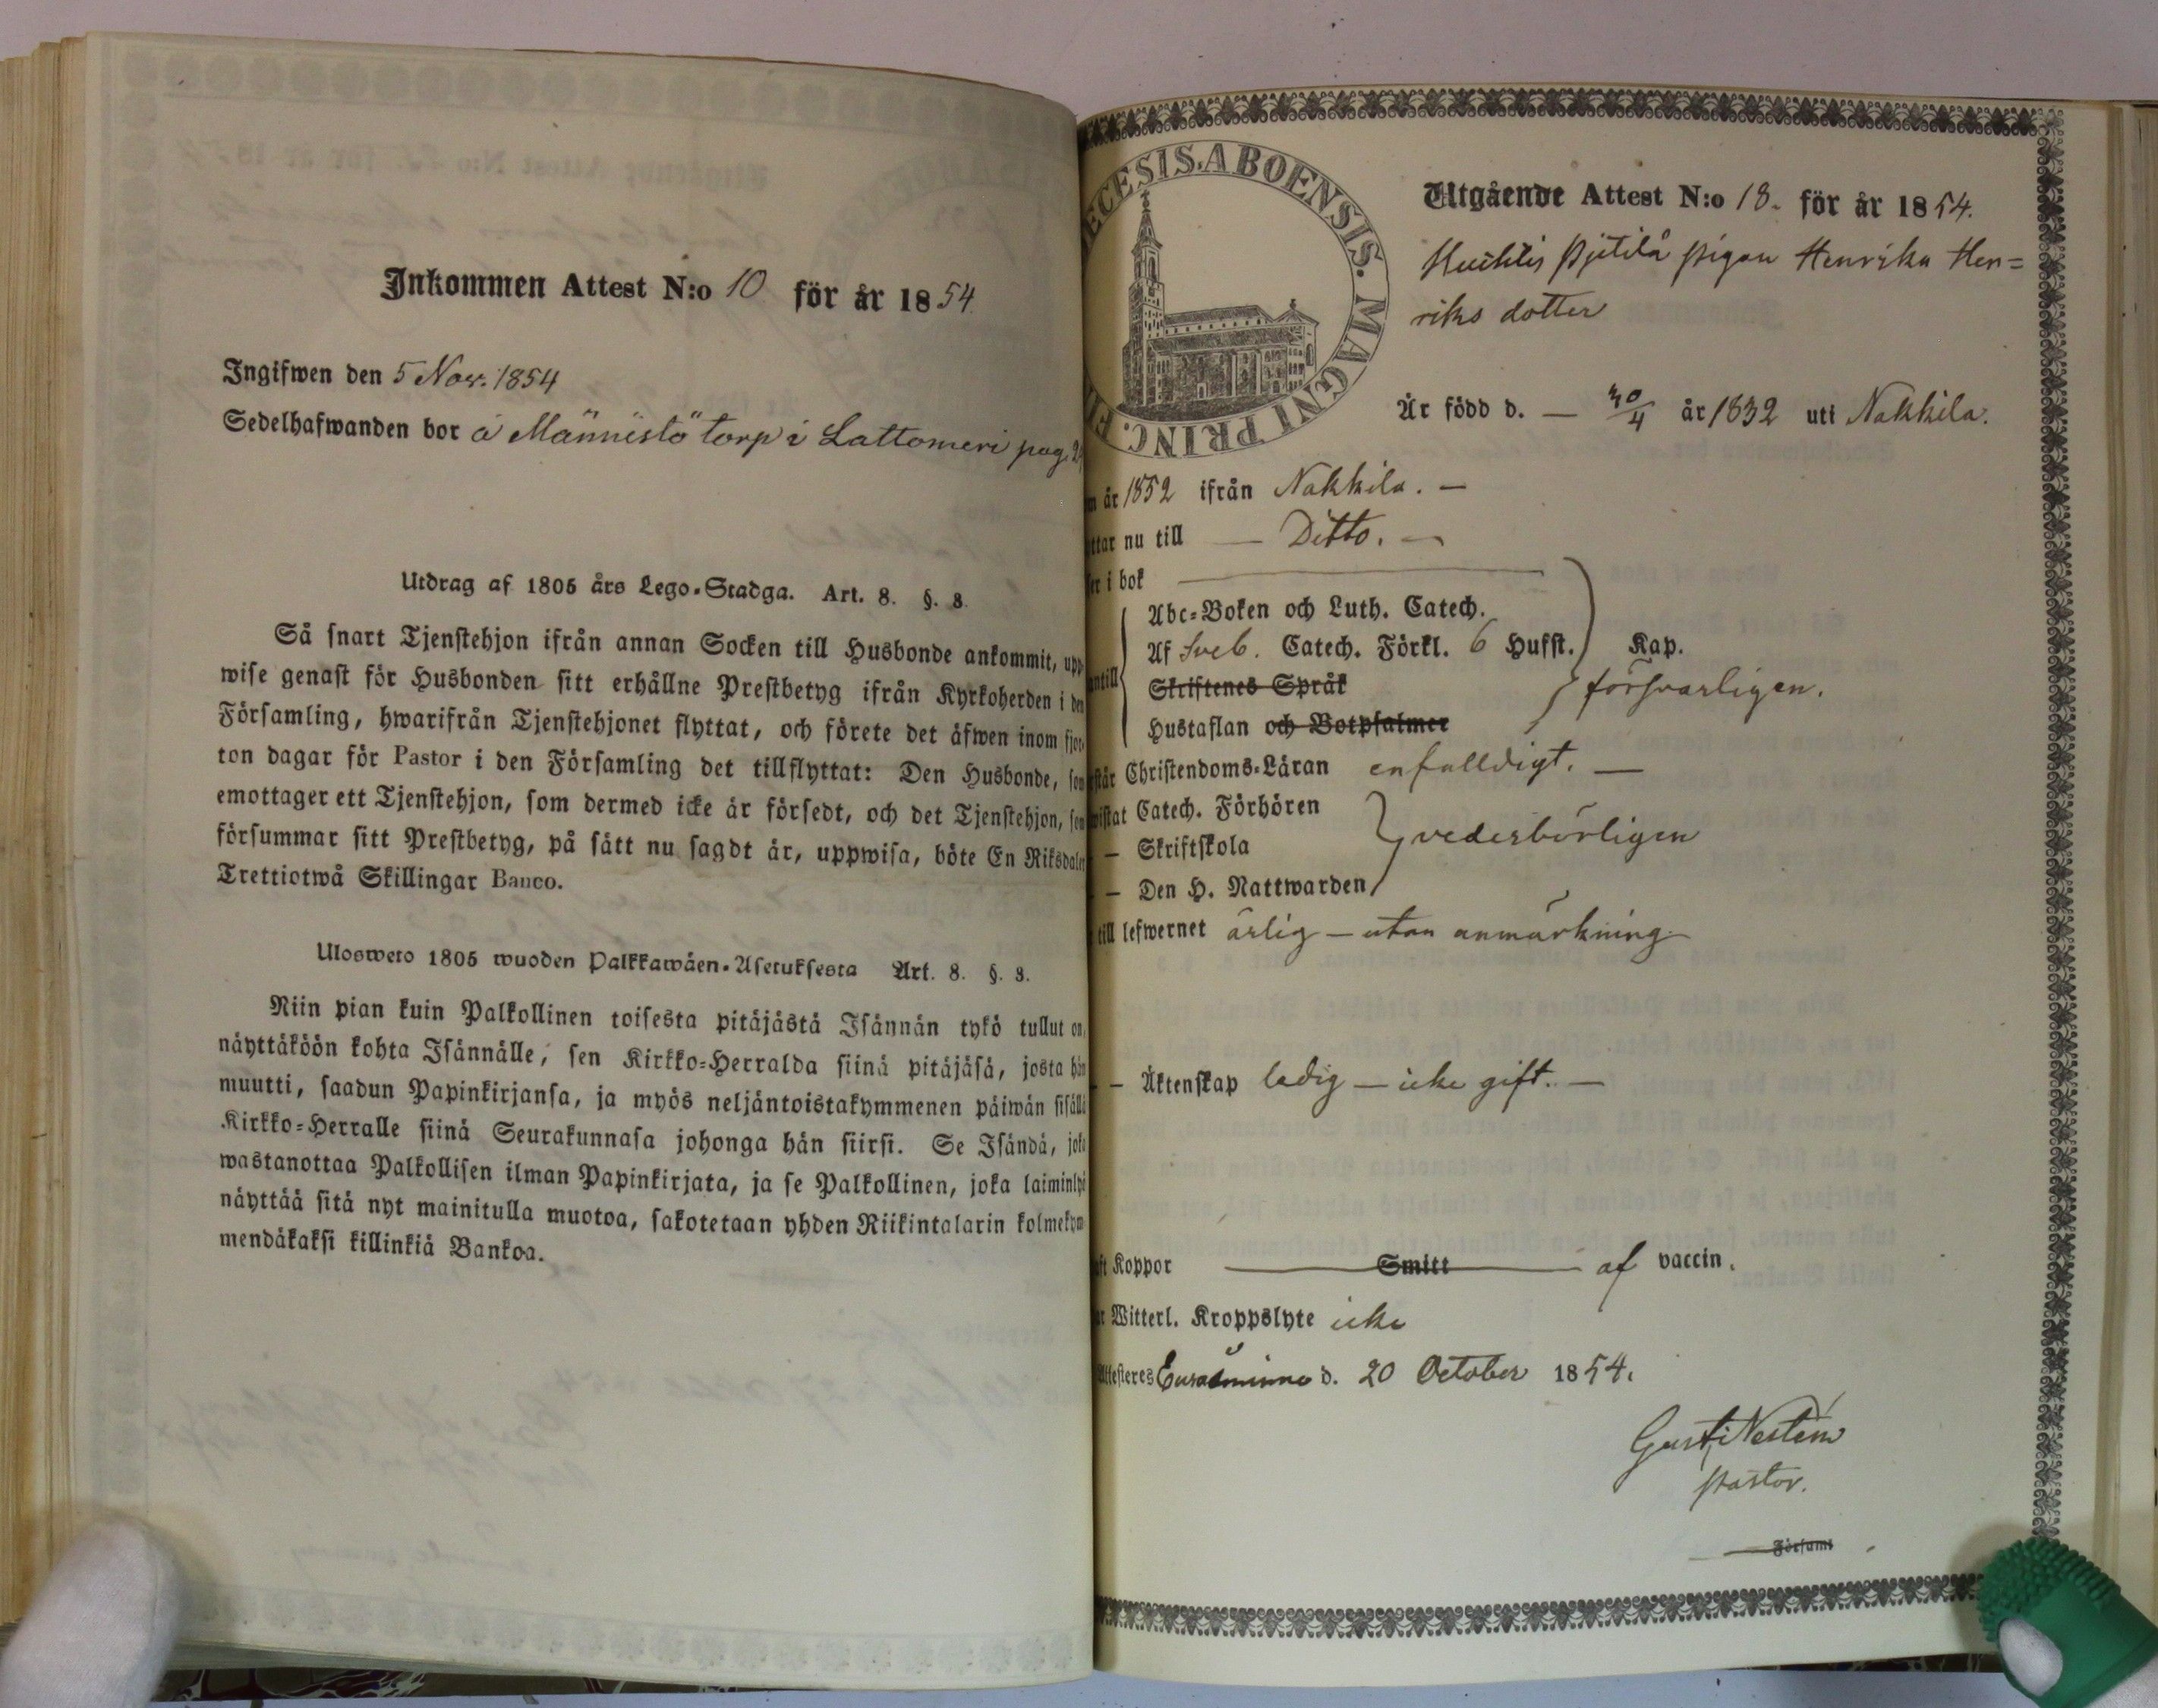 Inkommen Attest N:o 10 för år 1854
Ingifwen den 5 Nov. 1854
Sedelhafwanden bor å Männistö torp i Lattomeri pag.
Utdrag af 1805 års Lego-Stadga. Art. 8. §. 8.
Så snart Tjenstehjon ifrån annan Socken till Husbonde ankommit, upp-
wise genast för Husbonden sitt erhållne Prestbetyg ifrån Kyrkoherden i den
Församling, hwarifrån Tjenstehjonet flyttat, och förete det äfwen inom fjor-
ton dagar för Pastor i den Församling det tillflyttat: Den Husbonde, som
emottager ett Tjenstehjon, som dermed icke är försedt, och det Tjenstehjon, som
försummar sitt Prestbetyg, på sätt nu sagdt är, uppwisa, böte En Riksdaler
Trettiotwå Skillingar Banco.
Ulosweto 1805 wuoden Palkkawäen-Asetuksesta Art. 8. §. 8.
Niin pian kuin Palkollinen toisesta pitäjästä Isännän tykö tullut on,
näyttäköön kohta Isännälle, sen Kirkko-Herralda siinä pitäjäsä, josta hän
muutti, saadun Papinkirjansa, ja myös neljäntoistakymmenen päiwän sisällä
Kirkko-Herralle siinä Seurakunnasa johonga hän siirsi. Se Isändä, joka
wastanottaa Palkollisen ilman Papinkirjata, ja se Palkollinen, joka laiminlyö
näyttää sitä nyt mainitulla muotoa, sakotetaan yhden Riikintalarin kolmekym-
mendäkaksi killinkiä Bankoa.
ECESIS. ABOENSIS. MAGNI PRINC. FI
Utgående Attest N:o 18. för år 1854.
pigan Henrika Hen=
riks dotter
Är född d. — 30/4 år 1832 uti Nakkila.
n år 1852 ifrån Nakkila. —
ttar nu till — Ditto. —
er i bok
Abc-Boken och Luth. Catech.
antill Af Sveb. Catech. Förkl. 6 Hufst. Kap.
Skriftenes Språk försvarligen.
Hustaflan och Botpsalmer
står Christendoms-Läran enfalldigt. —
wistat Catech. Förhören
— Skriftskola vederbörligen
— Den H. Nattwarden
till lefwernet ärlig — utan anmärkning
— Äktenskap ledig — icke gift. —
ft Koppor Smitt af vaccin.
ar Witterl. Kroppslyte icke
Attesteres Euraåminne d. 20 October 1854.
Gust. Nestén
pastor.
Församl